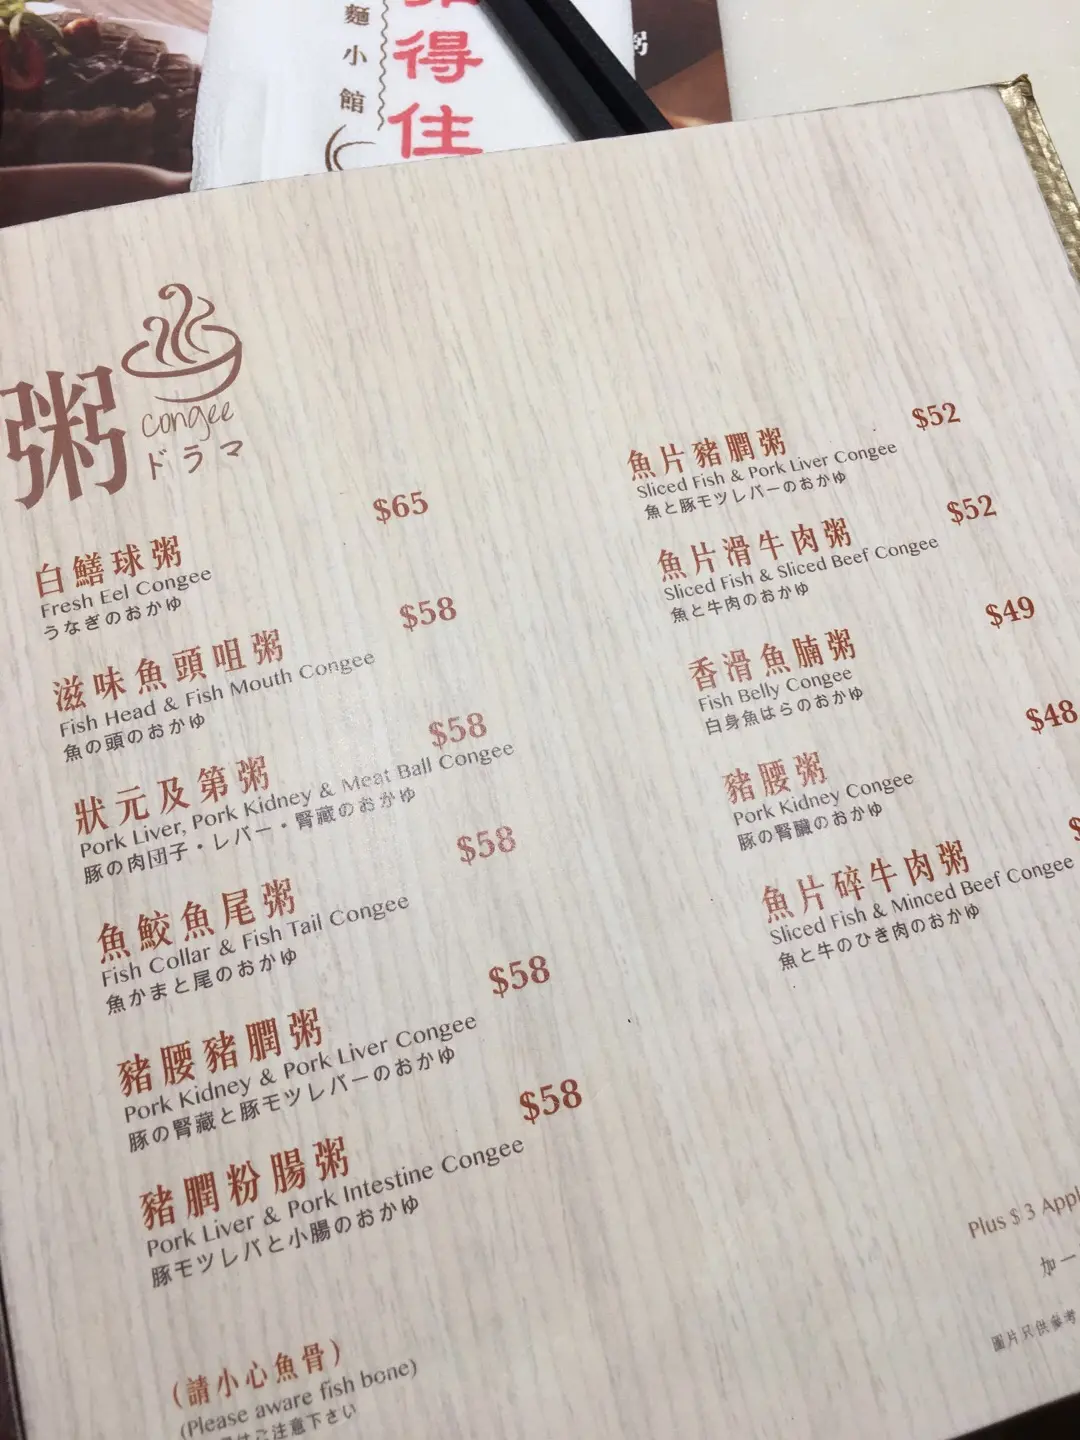 麵小館
得住
粥
粥
congee
ドラマ
$65
白鱔球粥
Fresh Eel Congee
うなぎのおかゆ
$58
滋味魚頭咀粥
Fish Head & Fish Mouth Congee
魚の頭のおかゆ
$58
狀元及第粥
Pork Liver, Pork Kidney & Meat Ball Congee
豚の肉団子・レバー・腎藏のおかゆ
$58
魚鮫魚尾粥
Fish Collar & Fish Tail Congee
魚かまと尾のおかゆ
$58
豬腰豬膶粥
Pork Kidney & Pork Liver Congee
豚の腎藏と豚モツレバーのおかゆ
$58
豬膶粉腸粥
Pork Liver & Pork Intestine Congee
豚モツレバと小腸のおかゆ
(請小心魚骨)
(Please aware fish bone)
はご注意下さい
$52
魚片豬膶粥
Sliced Fish & Pork Liver Congee
魚と豚モツレバーのおかゆ
$52
魚片滑牛肉粥
Sliced Fish & Sliced Beef Congee
魚と牛肉のおかゆ
$49
香滑魚腩粥
Fish Belly Congee
白身魚はらのおかゆ
$48
豬腰粥
Pork Kidney Congee
豚の腎臓のおかゆ
魚片碎牛肉粥
Sliced Fish & Minced Beef Congee
魚と牛のひき肉のおかゆ
Plus $ 3 Appl
加一
圖片只供參考